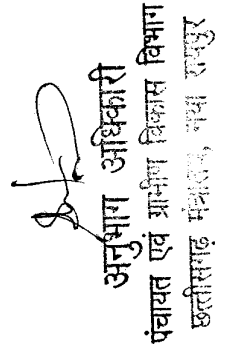 अनुभाग अधिकारी
पंचायत एवं ग्रामीण विकास विभाग
छत्तीसगढ़ मंत्रालय, नवा रायपुर